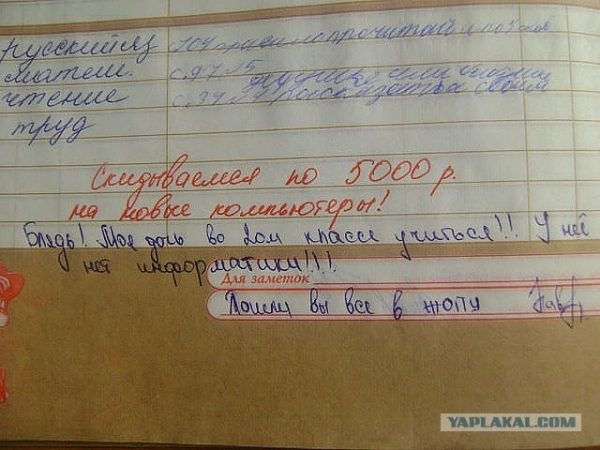 русский яз 104 правило прочитать и
матем. с.97 №5
чтение с.34 №4 рассказать о своем
труд
Скидываемся по 5000 р.
на новые компьютеры!
Блядь! Моя дочь во 2ом классе учиться!!! У неё
нет информатики!!!!
Для заметок
Пошли вы все в жопу
YAPLAKAL.COM